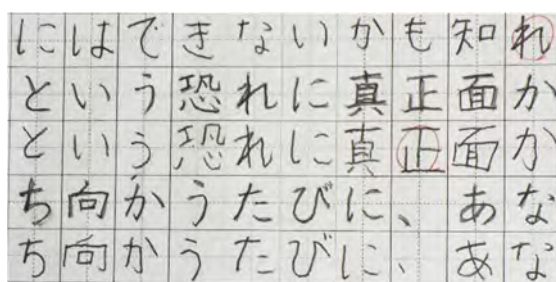 にはできないかも知れ
という恐れに真正面か
という恐れに真正面か
ち向かうたびに、あな
ち向かうたびに、あな